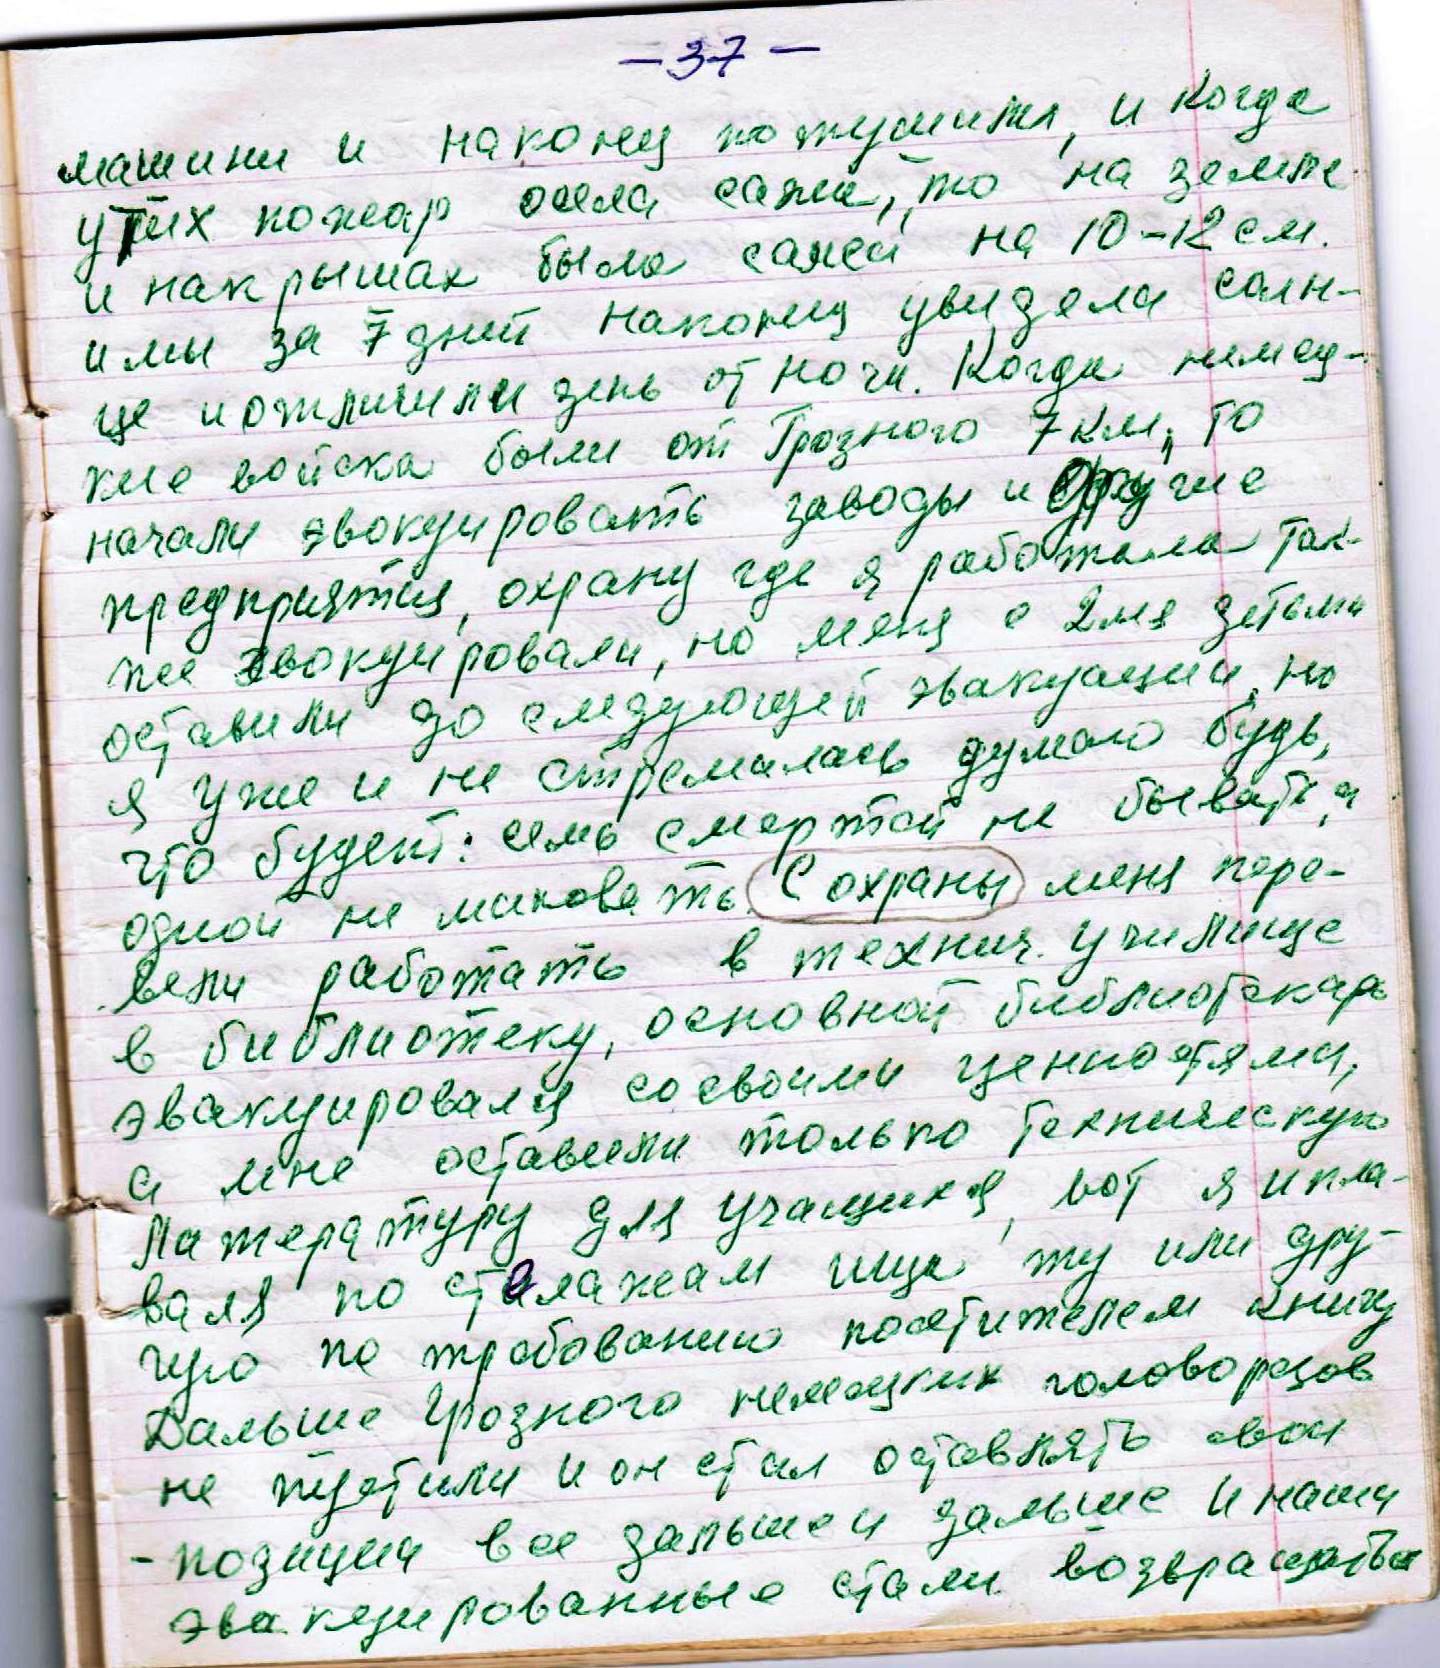 — 37 —
машини и наконец потушили, и когда
утих пожар осела сажа, то на земле
и на крышах было сажей на 10-12 см.
и мы за 7 дней наконец увидели солн-
це и отличили день от ночи. Когда немец-
кие войска были от Грозного 7 км, то
начали эвокуировать заводы и другие
предприятия, охрану где я работала так-
же эвокуировали, но меня с 2мя детьми
оставили до следующей эвакуации, но
я уже и не стремилась думаю будь,
что будет: семь смертей не бывать, а
одной не миновать. С охраны меня пере-
вели работать в технич. училище
в библиотеку, основной библиотекарь
эвакуировался со своими ценностями,
а мне оставили только техническую
литературу для учащихся, вот я и пла-
вала по стелажам ища ту или дру-
гую по требованию посетителем книгу
Дальше Грозного немецких головорезов
не пустили и он стал оставлять свои
- позиции все дальше и дальше и наши
эвакуированные стали возвращаться